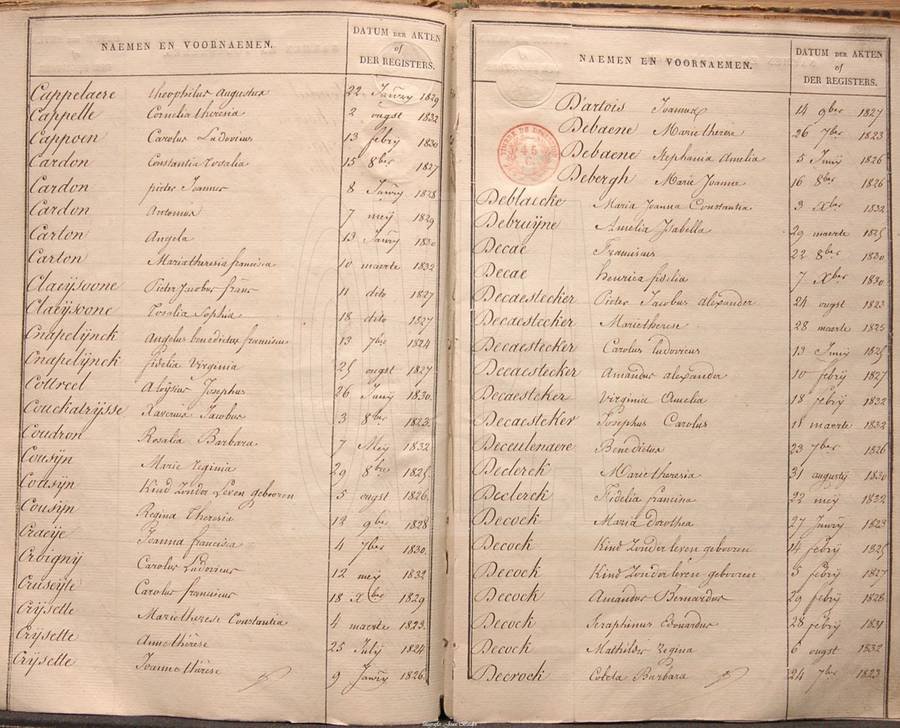 NAEMEN EN VOORNAEMEN. DATUM DER AKTEN of DER REGISTERS.
Cappelaere theophilus Augustus 22 Janry 1829
Cappelle Cornelia theresia 2 ougst 1832
Cappoen Carolus Ludovicus 13 febry 1830
Cardon Constantia Rosalia 15 8ber 1827
Cardon pieter Joannes 8 Janry 1828
Cardon Antonius 7 meÿ 1829
Carton Angela 13 Janry 1830
Carton Maria theresia francisca 10 maerte 1832
Claeÿsoone Pieter Jacobus frans 11 dito 1827
Claeÿsoone Rosalia Sophia 18 dito 1827
Cnapelÿnck Angelus benedictus franciscus 13 7ber 1824
Cnapelÿnck fidelia Virginia 25 ougst 1827
Cottreel Aloÿsius Josephus 26 Junÿ 1830.
Couchatrÿsse Xaverius Jacobus 3 8ber 1823.
Coudron Rosalia Barbara 7 Meÿ 1832
Cousÿn Marie Reginia 29 8ber 1825
Cousÿn Kind Zonder Leven gebooren 5 ougst 1826.
Cousÿn Regina Theresia 12 9ber 1828
Craeÿe Joanna francisca 4 7ber 1830.
Crbignÿ Carolus Ludovicus 12 meÿ 1832
Cruseÿle Carolus franciscus 18 Xber 1829
Crÿsette Marietherese Constantia 4 maerte 1823.
Crÿsette Annethérèse 25 Julÿ 1824
Crÿsette Joannethérèse 9 Janry 1826.
NAEMEN EN VOORNAEMEN. DATUM DER AKTEN of DER REGISTERS.
D'artois Joannes 14 9ber 1827
Debaene Marietherese 26 7ber 1823
Debaene Stephania Amelia 5 Junÿ 1826
Debergh Marie Joanne 16 8ber 1826
Deblaecke Maria Joanna Constantia 3 Xber 1832.
Debruÿne Amelia Isabella 29 maerte 1825
Decae Franciscus 22 8ber 1830
Decae henrica fidilia 7 Xber 1830
Decaestecker Pieter Jacobus alexander 24 ougst 1823
Decaestecker Marietherese 28 maerte 1825
Decaestecker Carolus Ludovicus 13 Junÿ 1825
Decaestecker Amandus alexander 10 febrÿ 1827
Decaesteker Virginia Amelia 18 febrÿ 1832
Decaesteker Josephus Carolus 11 maerte 1832
Deceulenaere Benedictus 23 7ber 1826
Declerck Marietheresia 31 augusty 1830
Declerck Fidelia francisca 22 meÿ 1832
Decock Maria Dorothea 27 Janrÿ 1823
Decock Kind Zonder leven gebooren 14 febrÿ 1825
Decock Kind Zonder leven gebooren 5 febrÿ 1827
Decock Amandus Bernardus 29 febrÿ 1828
Decock Seraphinus Edouardus 28 febrÿ 1831
Decock Mathilde Regina 6 ougst 1832
Decrock Coleta Barbara 24 7ber 1823